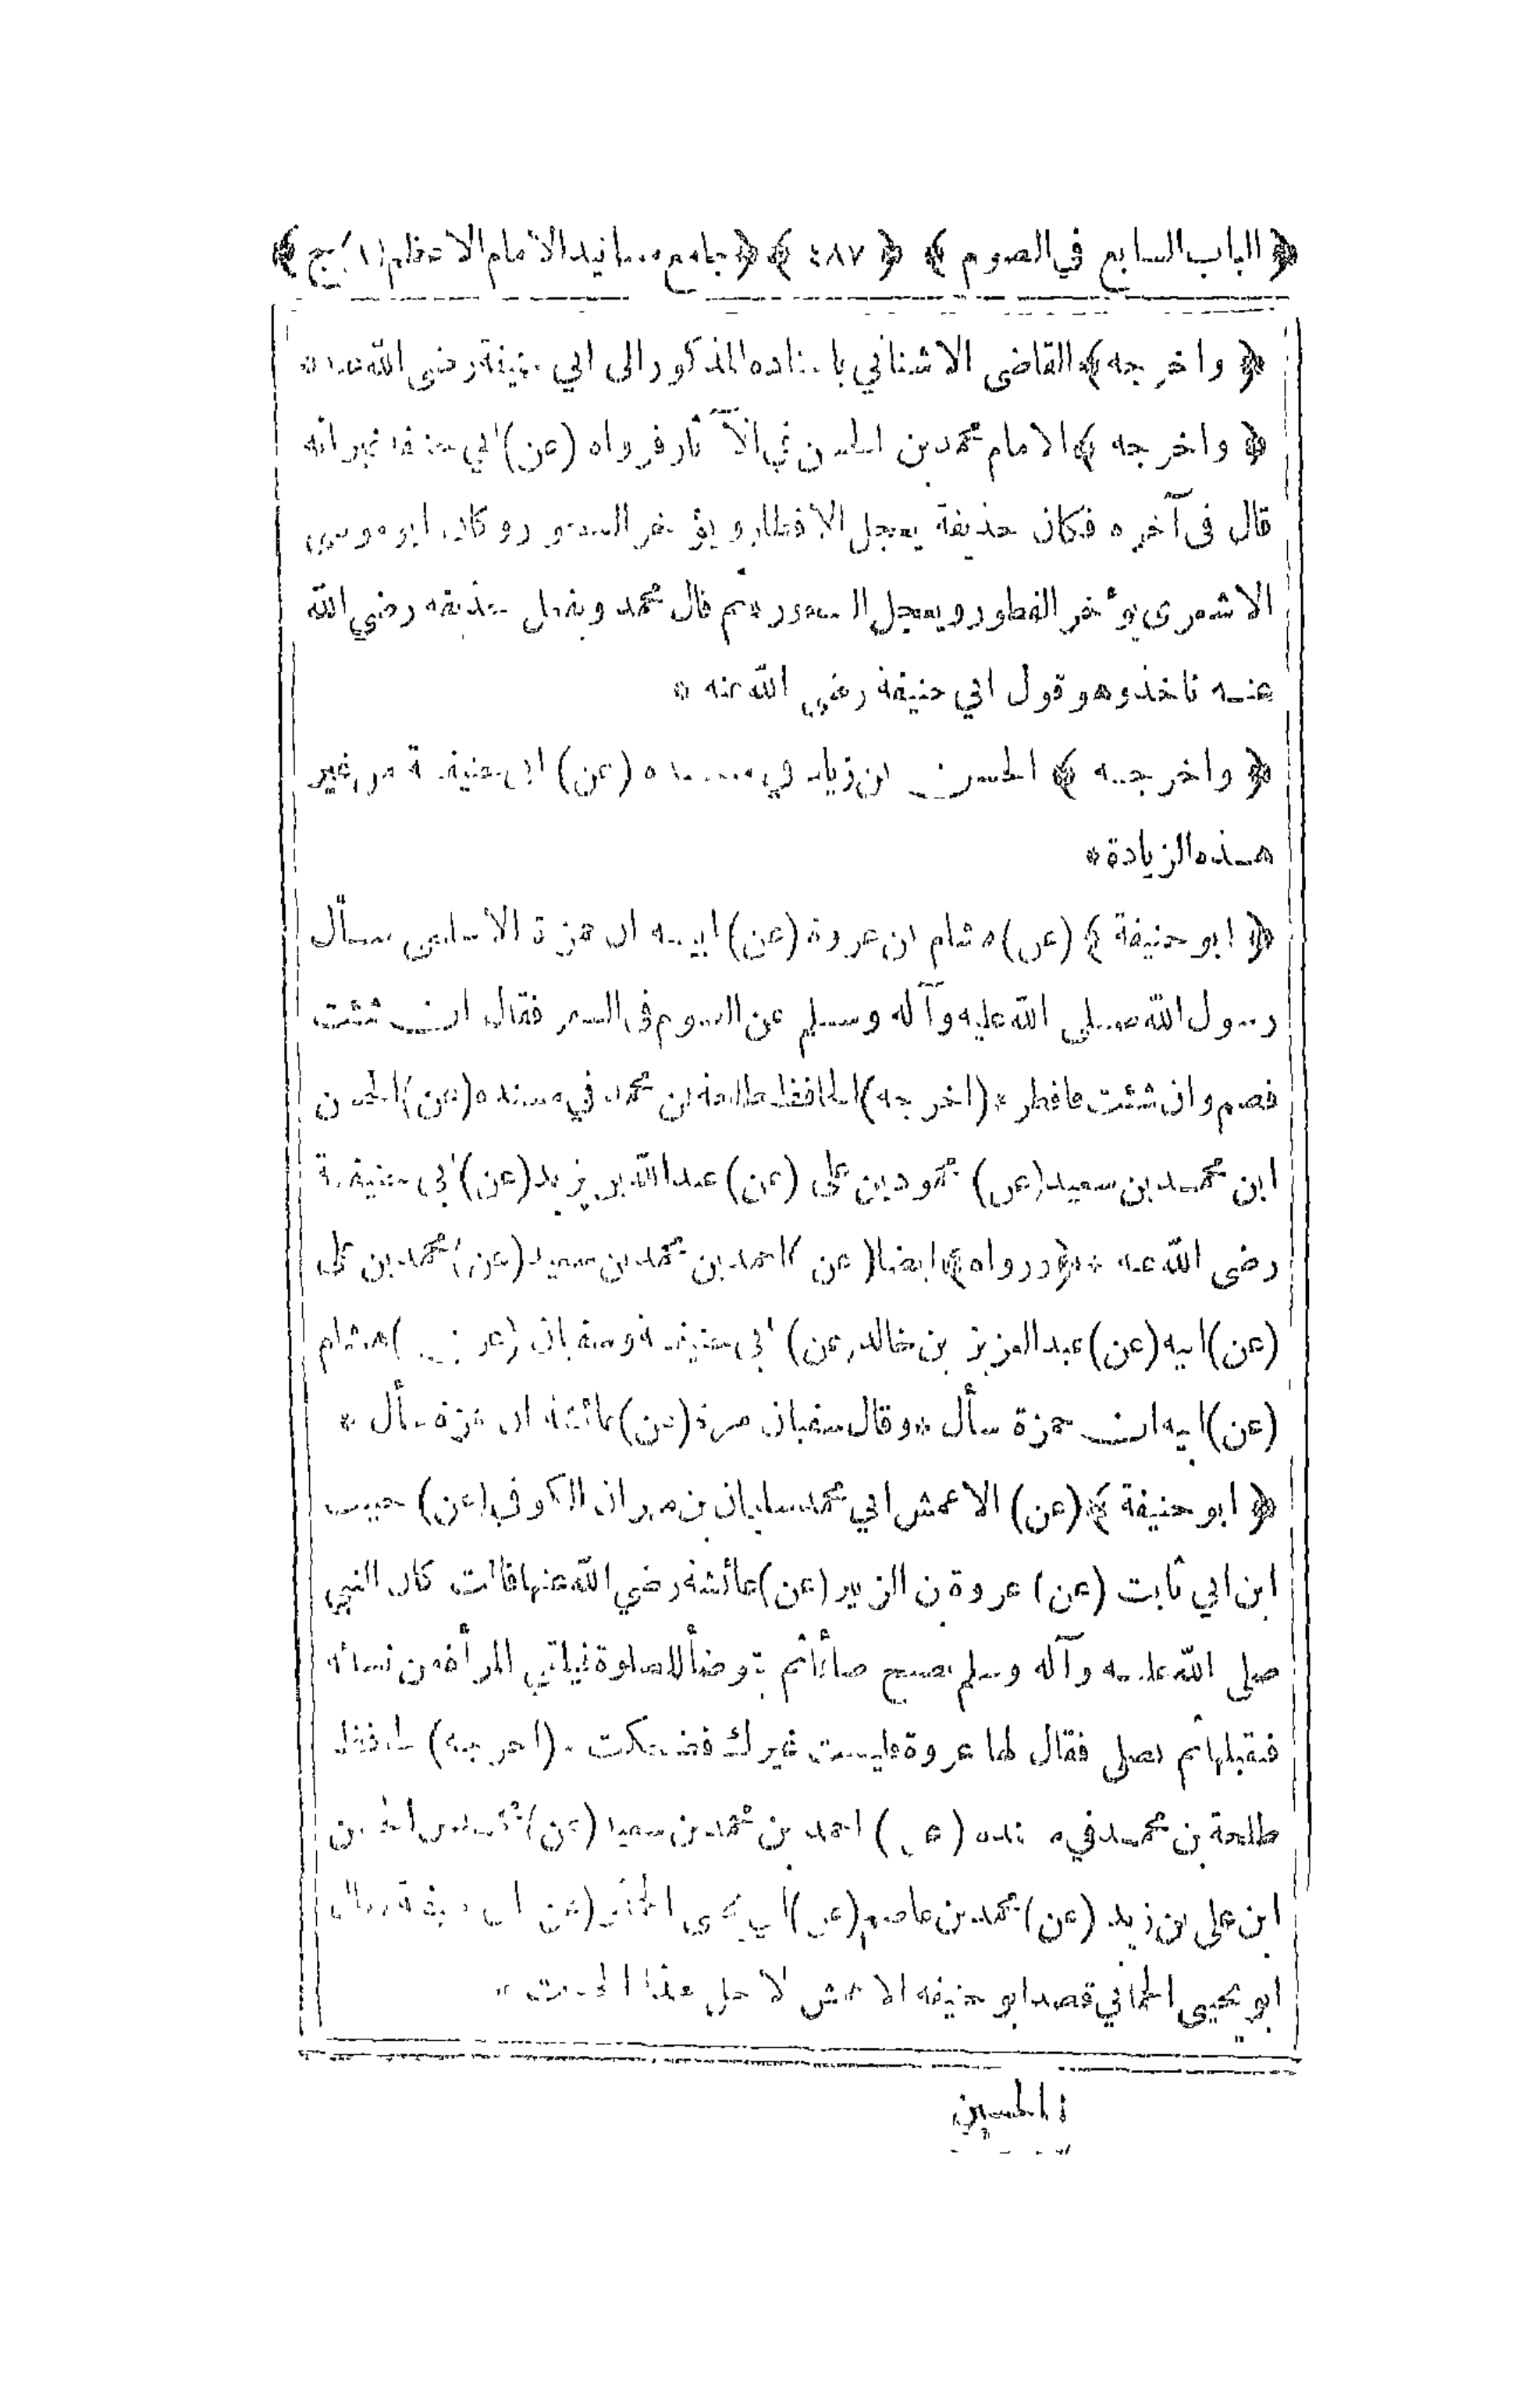 ﴿ الباب السابع في الصوم ﴾ ﴿ ٤٨٧ ﴾ ﴿ جامع مسانيد الامام الاعظم (١) ج ﴾
﴿ واخرجه ﴾ القاضى الاشناني باسناده المذكور الى ابي حنيفة رضى الله عنه *
﴿ واخرجه ﴾ الامام محمد بن الحسن في الآثار فرواه (عن) ابي حنيفة غير انه
قال فى آخره فكان حذيفة يعجل الافطار ويؤخر السحور وكان ابو موسى
الاشعرى يؤخر الفطور ويعجل السحور * ثم قال محمد وبفعل حذيفه رضي الله
عنه ناخذ وهو قول ابي حنيفة رضي الله عنه *
﴿ واخرجه ﴾ الحسن بن زياد في مسنده (عن) ابى حنيفة من غير
هذه الزيادة *
﴿ ابو حنيفة ﴾ (عن) هشام بن عروة (عن) ابيه ان حمزة الاسلمى سأل
رسول الله صلى الله عليه وآله وسلم عن الصوم فى السفر فقال ان شئت
فصم وان شئت فافطر * (اخرجه) الحافظ طلحة بن محمد في مسنده (عن) الحسن
ابن محمد بن سعيد (عن) محمود بن على (عن) عبد الله بن يزيد (عن) ابى حنيفة
رضى الله عنه * ﴿ ورواه ﴾ ايضا (عن) احمد بن محمد بن سعيد (عن) محمد بن على
(عن) ابيه (عن) عبد العزيز بن خالد (عن) ابى حنيفة وسفيان (عن) هشام
(عن) ابيه ان حمزة سأل * وقال سفيان مرة (عن) عائشة ان حمزة سأل *
﴿ ابو حنيفة ﴾ (عن) الاعمش ابي محمد سليمان بن مهران الكوفى (عن) حبيب
ابن ابي ثابت (عن) عروة بن الزبير (عن) عائشة رضي الله عنها قالت كان النبي
صلى الله عليه وآله وسلم يصبح صائما ثم يتوضأ للصلوة فيلقى المرأة من نسائه
فيقبلها ثم يصلى فقال لها عروة فليست غيرك فضحكت * (اخرجه) الحافظ
طلحة بن محمد في مسنده (عن) احمد بن محمد بن سعيد (عن) بن
ابن على بن زيد (عن) محمد بن عاصم (عن) ابي يحيى الحمانى (عن) ابى حنيفة وقال
ابو يحيى الحماني قصد ابو حنيفه الاعمش لاجل هذا الحديث *
الحسين